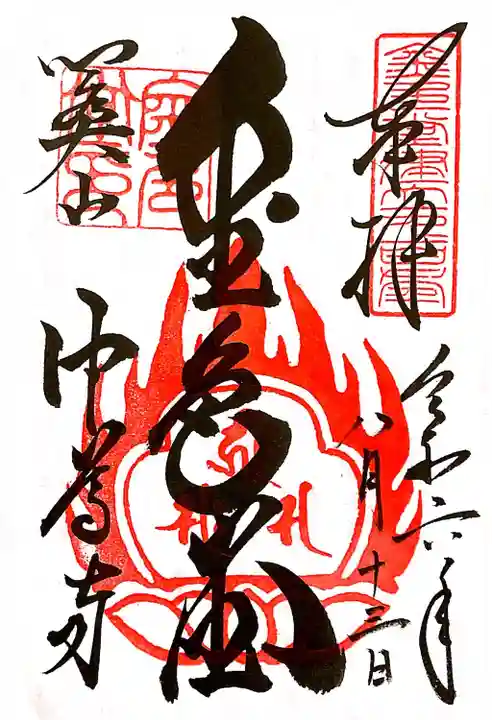 奉拝
令和六年
八月十三日
金色堂
関山
中尊寺